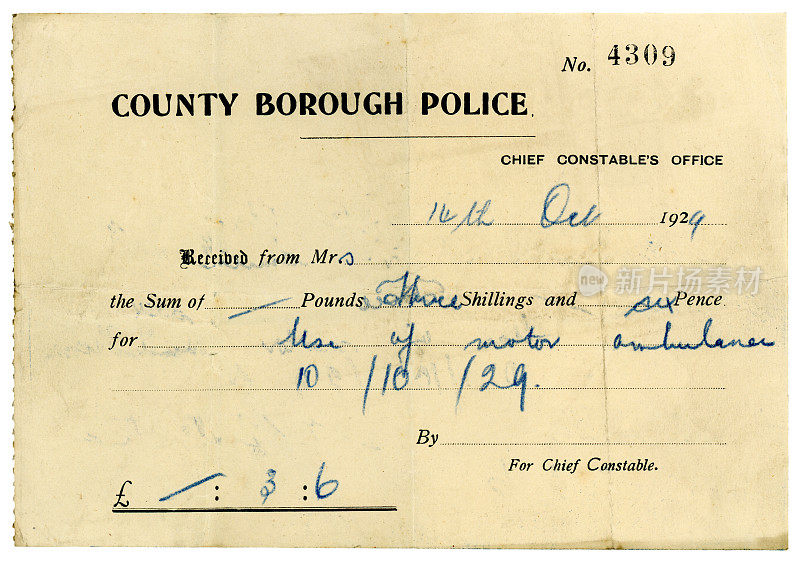 No. 4309
COUNTY BOROUGH POLICE.
CHIEF CONSTABLE'S OFFICE
14th Oct 1929
Received from Mrs
the Sum of — Pounds three Shillings and six Pence
for Use of motor ambulance
10/10/29.
By
For Chief Constable.
£ — : 3 : 6
new 新片场素材